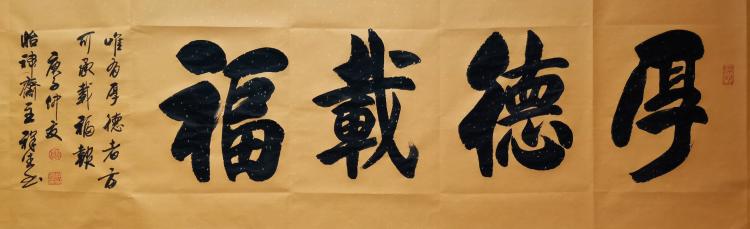 厚德載福
唯有厚德者方
可承載福報
庚子仲夏
怡神齋主祥生书